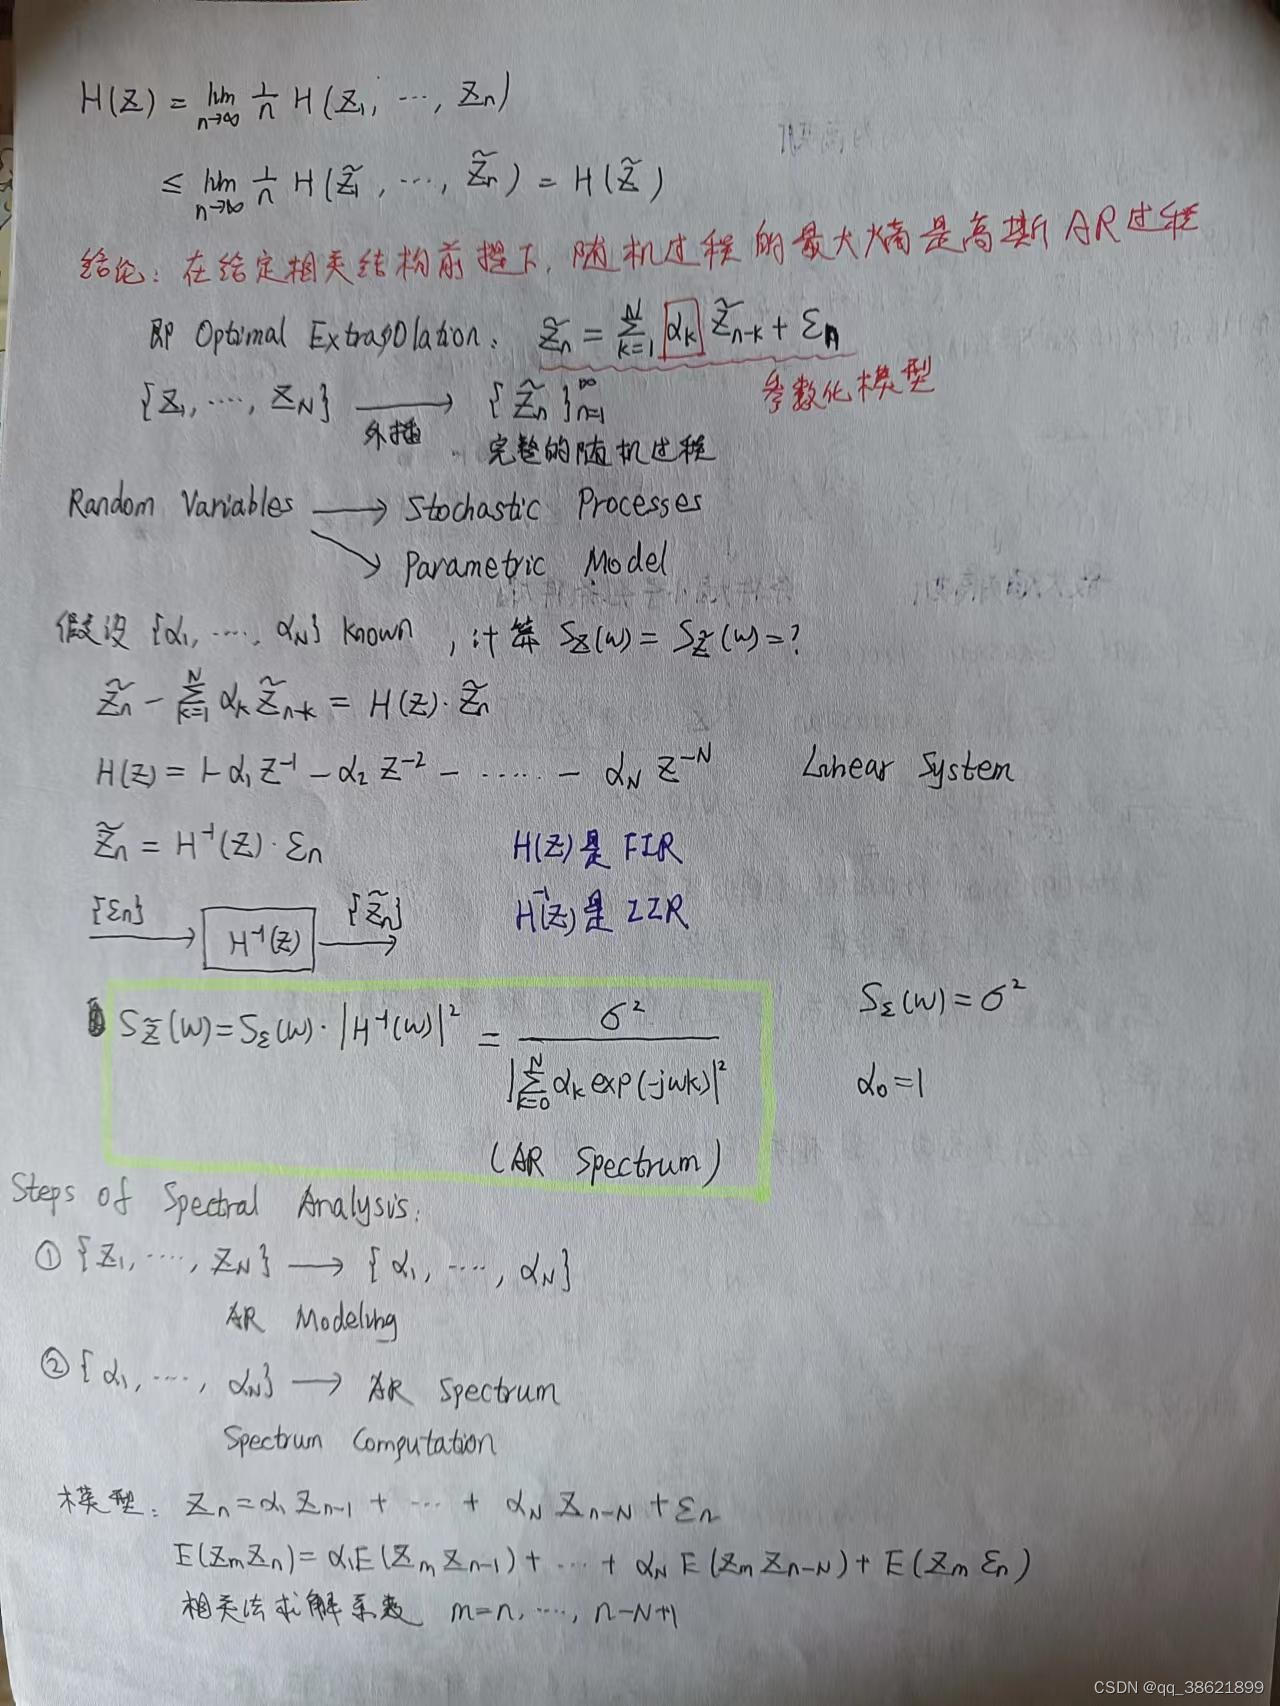 H(Z) = lim n→∞ 1/n H(Z₁, ..., Zₙ)
≤ lim n→∞ 1/n H(Z̃₁, ..., Z̃ₙ) = H(Z̃)
结论：在给定相关结构前提下，随机过程的最大熵是高斯AR过程
即 Optimal Extrapolation: Z̃ₙ = Σ_{k=1}^{N} αₖ Z̃ₙ₋ₖ + εₙ
参数化模型
{Z₁, ..., Z_N} → {Z̃ₙ}_{n=1}^{∞}
外插 完整的随机过程
Random Variables → Stochastic Processes
↘ Parametric Model
假设 {α₁, ..., α_N} known, 计算 S_Z(ω) = S_Z̃(ω) = ?
Z̃ₙ - Σ_{k=1}^{N} αₖ Z̃ₙ₋ₖ = H(Z)·Z̃ₙ
H(Z) = 1-α₁Z⁻¹ - α₂Z⁻² - ...... - α_N Z⁻ᴺ Linear System
Z̃ₙ = H⁻¹(Z)·εₙ H(Z)是FIR
{εₙ} → H⁻¹(Z) → {Z̃ₙ} H⁻¹(Z)是IIR
S_Z̃(ω) = S_ε(ω)·|H⁻¹(ω)|² = σ² / |Σ_{k=0}^{N} αₖ exp(-jωk)|² S_ε(ω) = σ²
α₀ = 1
(AR Spectrum)
Steps of Spectral Analysis:
① {Z₁, ..., Z_N} → {α₁, ..., α_N}
AR Modeling
② {α₁, ..., α_N} → AR Spectrum
Spectrum Computation
模型: Zₙ = α₁Zₙ₋₁ + ... + α_N Zₙ₋N + εₙ
E(ZₘZₙ) = α₁E(ZₘZₙ₋₁) + ... + α_N E(ZₘZₙ₋N) + E(Zₘεₙ)
相关法求解系数 m=n, ..., n-N+1
CSDN @qq_38621899